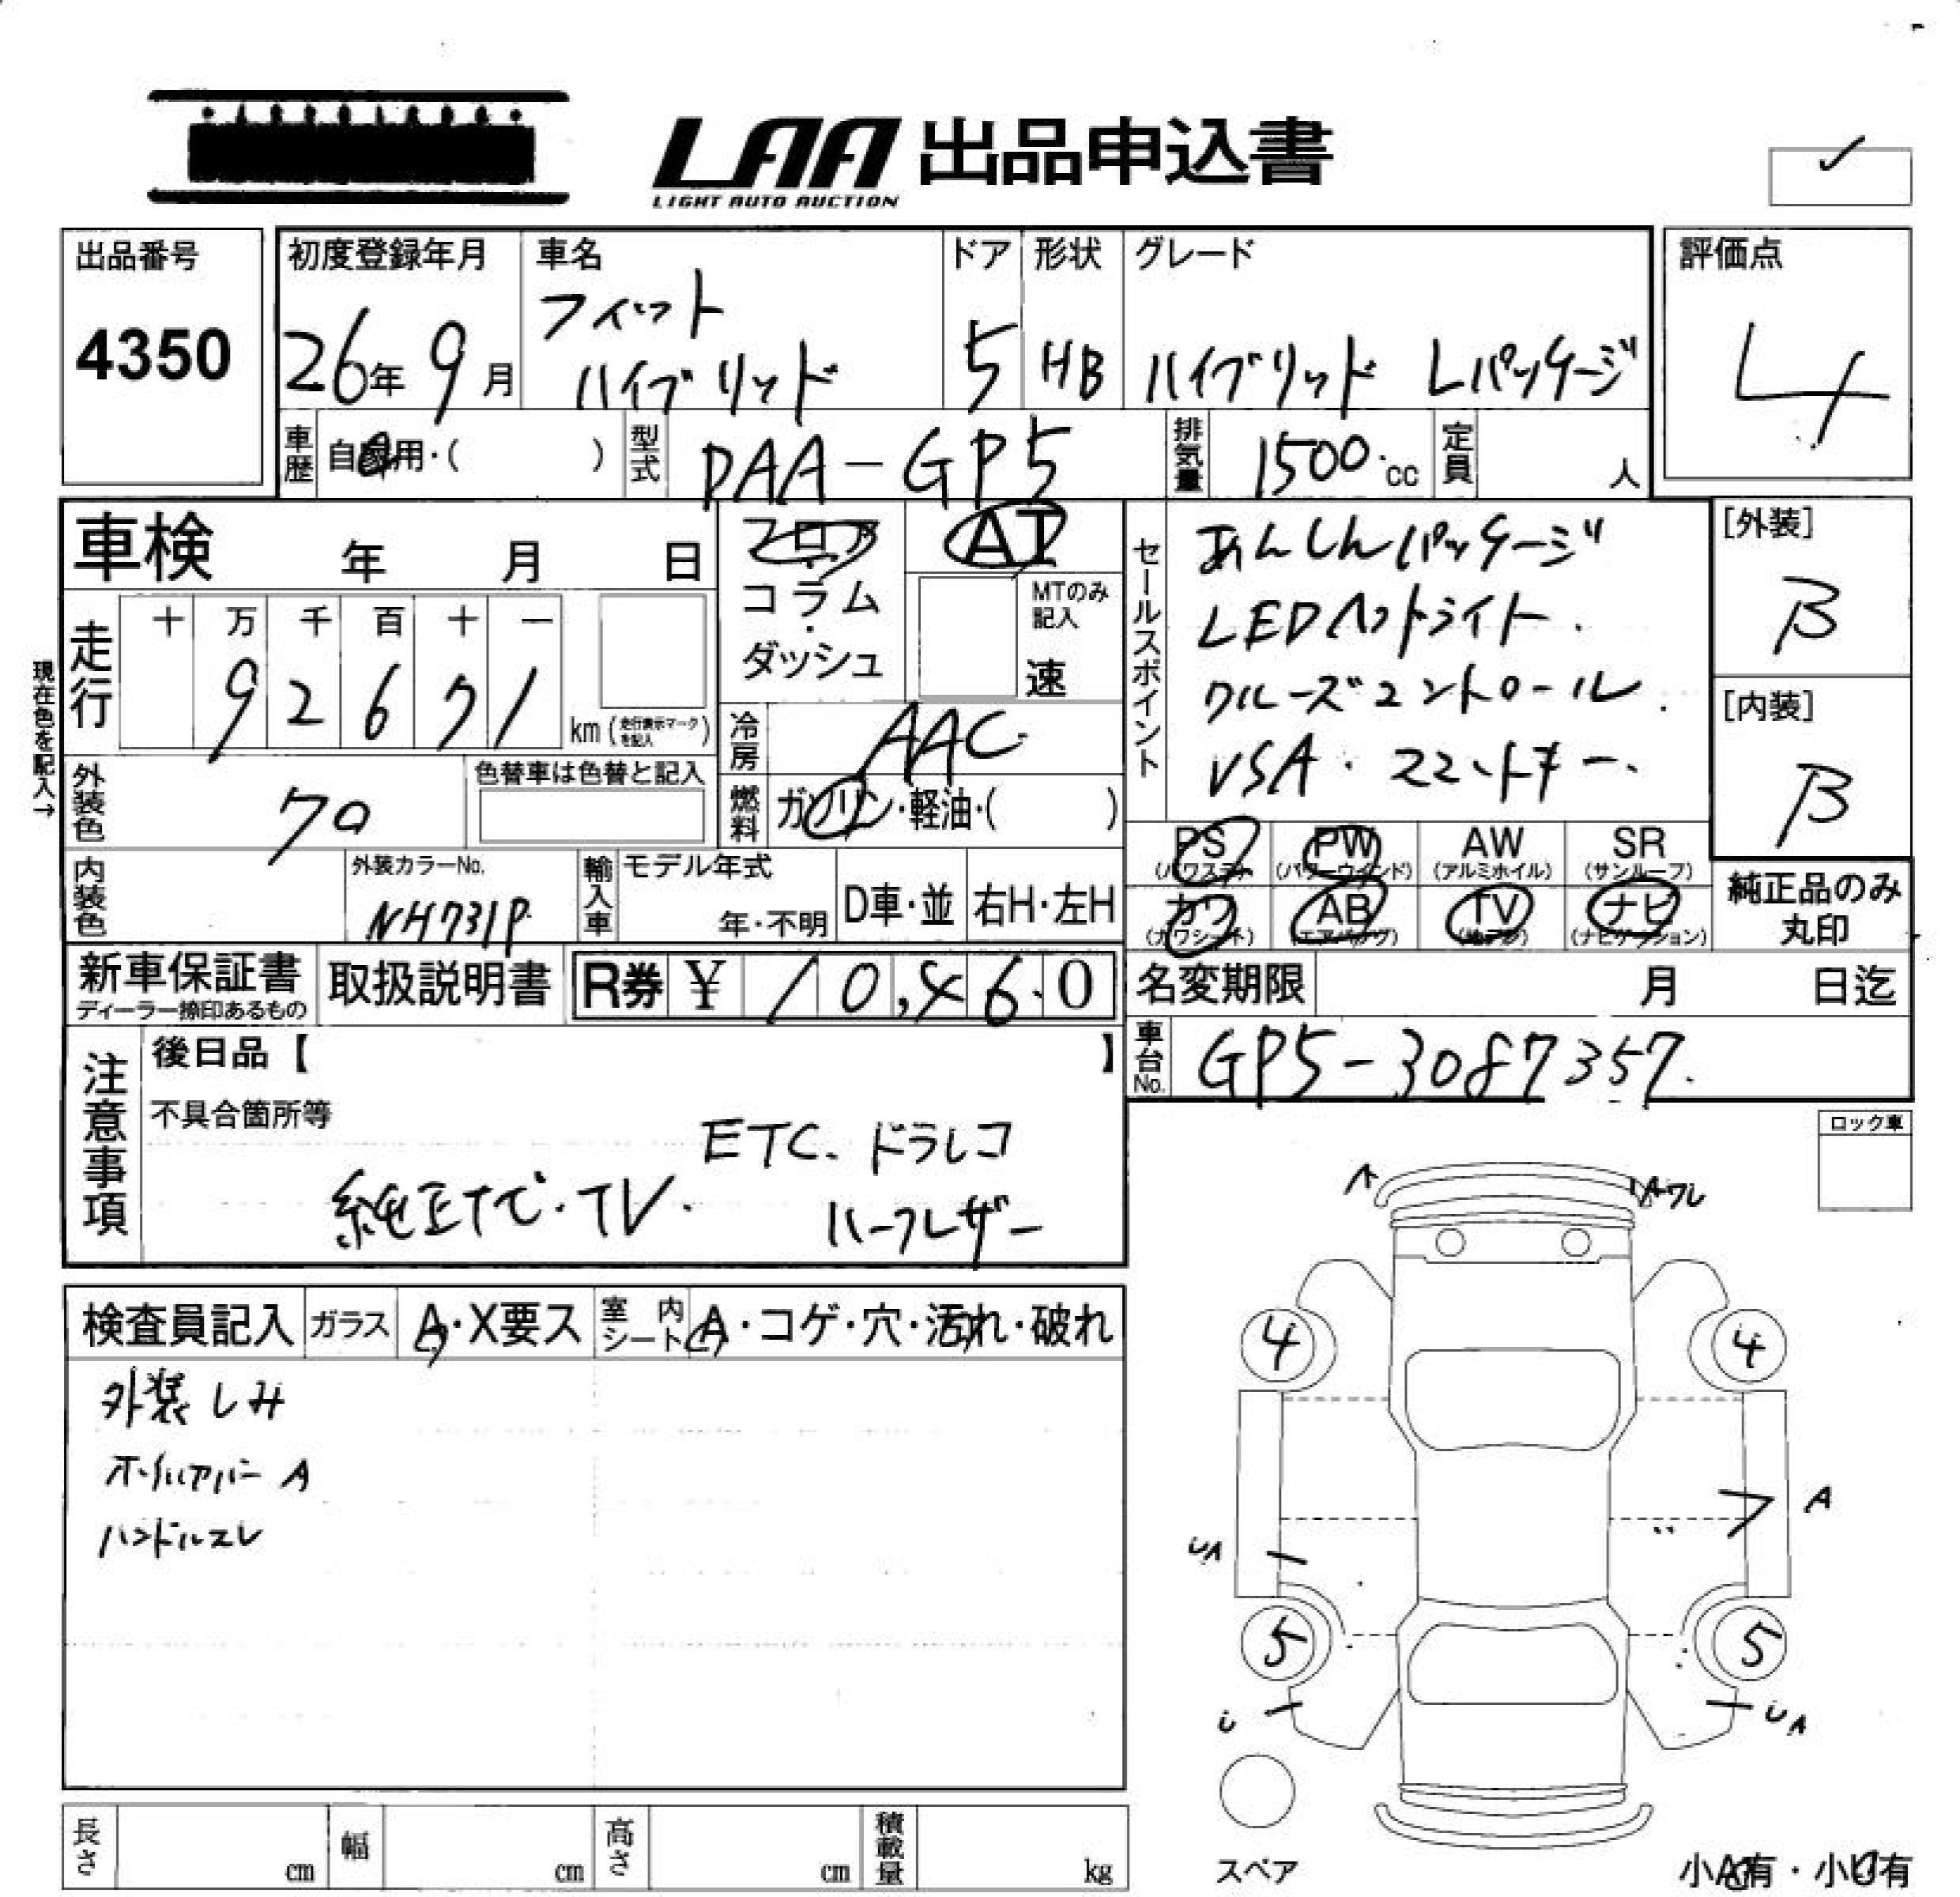 LAA 出品申込書
LIGHT AUTO AUCTION
出品番号
4350
初度登録年月
26年 9月
車名
フィット
ハイブリッド
ドア
5
形状
HB
グレード
ハイブリッド Lパッケージ
評価点
4
車歴
自家用・( )
型式
DAA-GP5
排気量
1500.cc
定員
人
車検 年 月 日
フロア
コラム
・
ダッシュ
AT
MTのみ
記入
速
セールスポイント
あんしんパッケージ
LEDヘッドライト.
クルーズコントロール.
VSA.スマートキー.
[外装]
B
[内装]
B
現在色を記入→
走行
十 万 千 百 十 一
9 2 6 7 1
km (走行表示マークを記入)
冷房
AAC
燃料
ガソリン・軽油・( )
外装色
クロ
色替車は色替と記入
内装色
外装カラーNo.
NH731P
輸入車
モデル年式
年・不明
D車・並
右H・左H
PS
(パワステ)
PW
(パワーウインド)
AW
(アルミホイル)
SR
(サンルーフ)
カワ
(カワシート)
AB
(エアバッグ)
TV
(地デジ)
ナビ
(ナビゲーション)
純正品のみ
丸印
新車保証書
ディーラー捺印あるもの
取扱説明書
R券 ¥ 10,460
名変期限 月 日迄
車台No.
GP5-3087357.
注意事項
後日品【 】
不具合箇所等
ETC. ドラレコ
純正ナビ・TV. ハーフレザー
ロック車
A
Aワレ
検査員記入
ガラス
A・X要ス
室内シート
A・コゲ・穴・汚れ・破れ
外装 しみ
ホイルカバー A
ハンドルスレ
4
4
A
UA
5
5
U
UA
スペア
小A有・小U有
長さ cm
幅 cm
高さ cm
積載量 kg